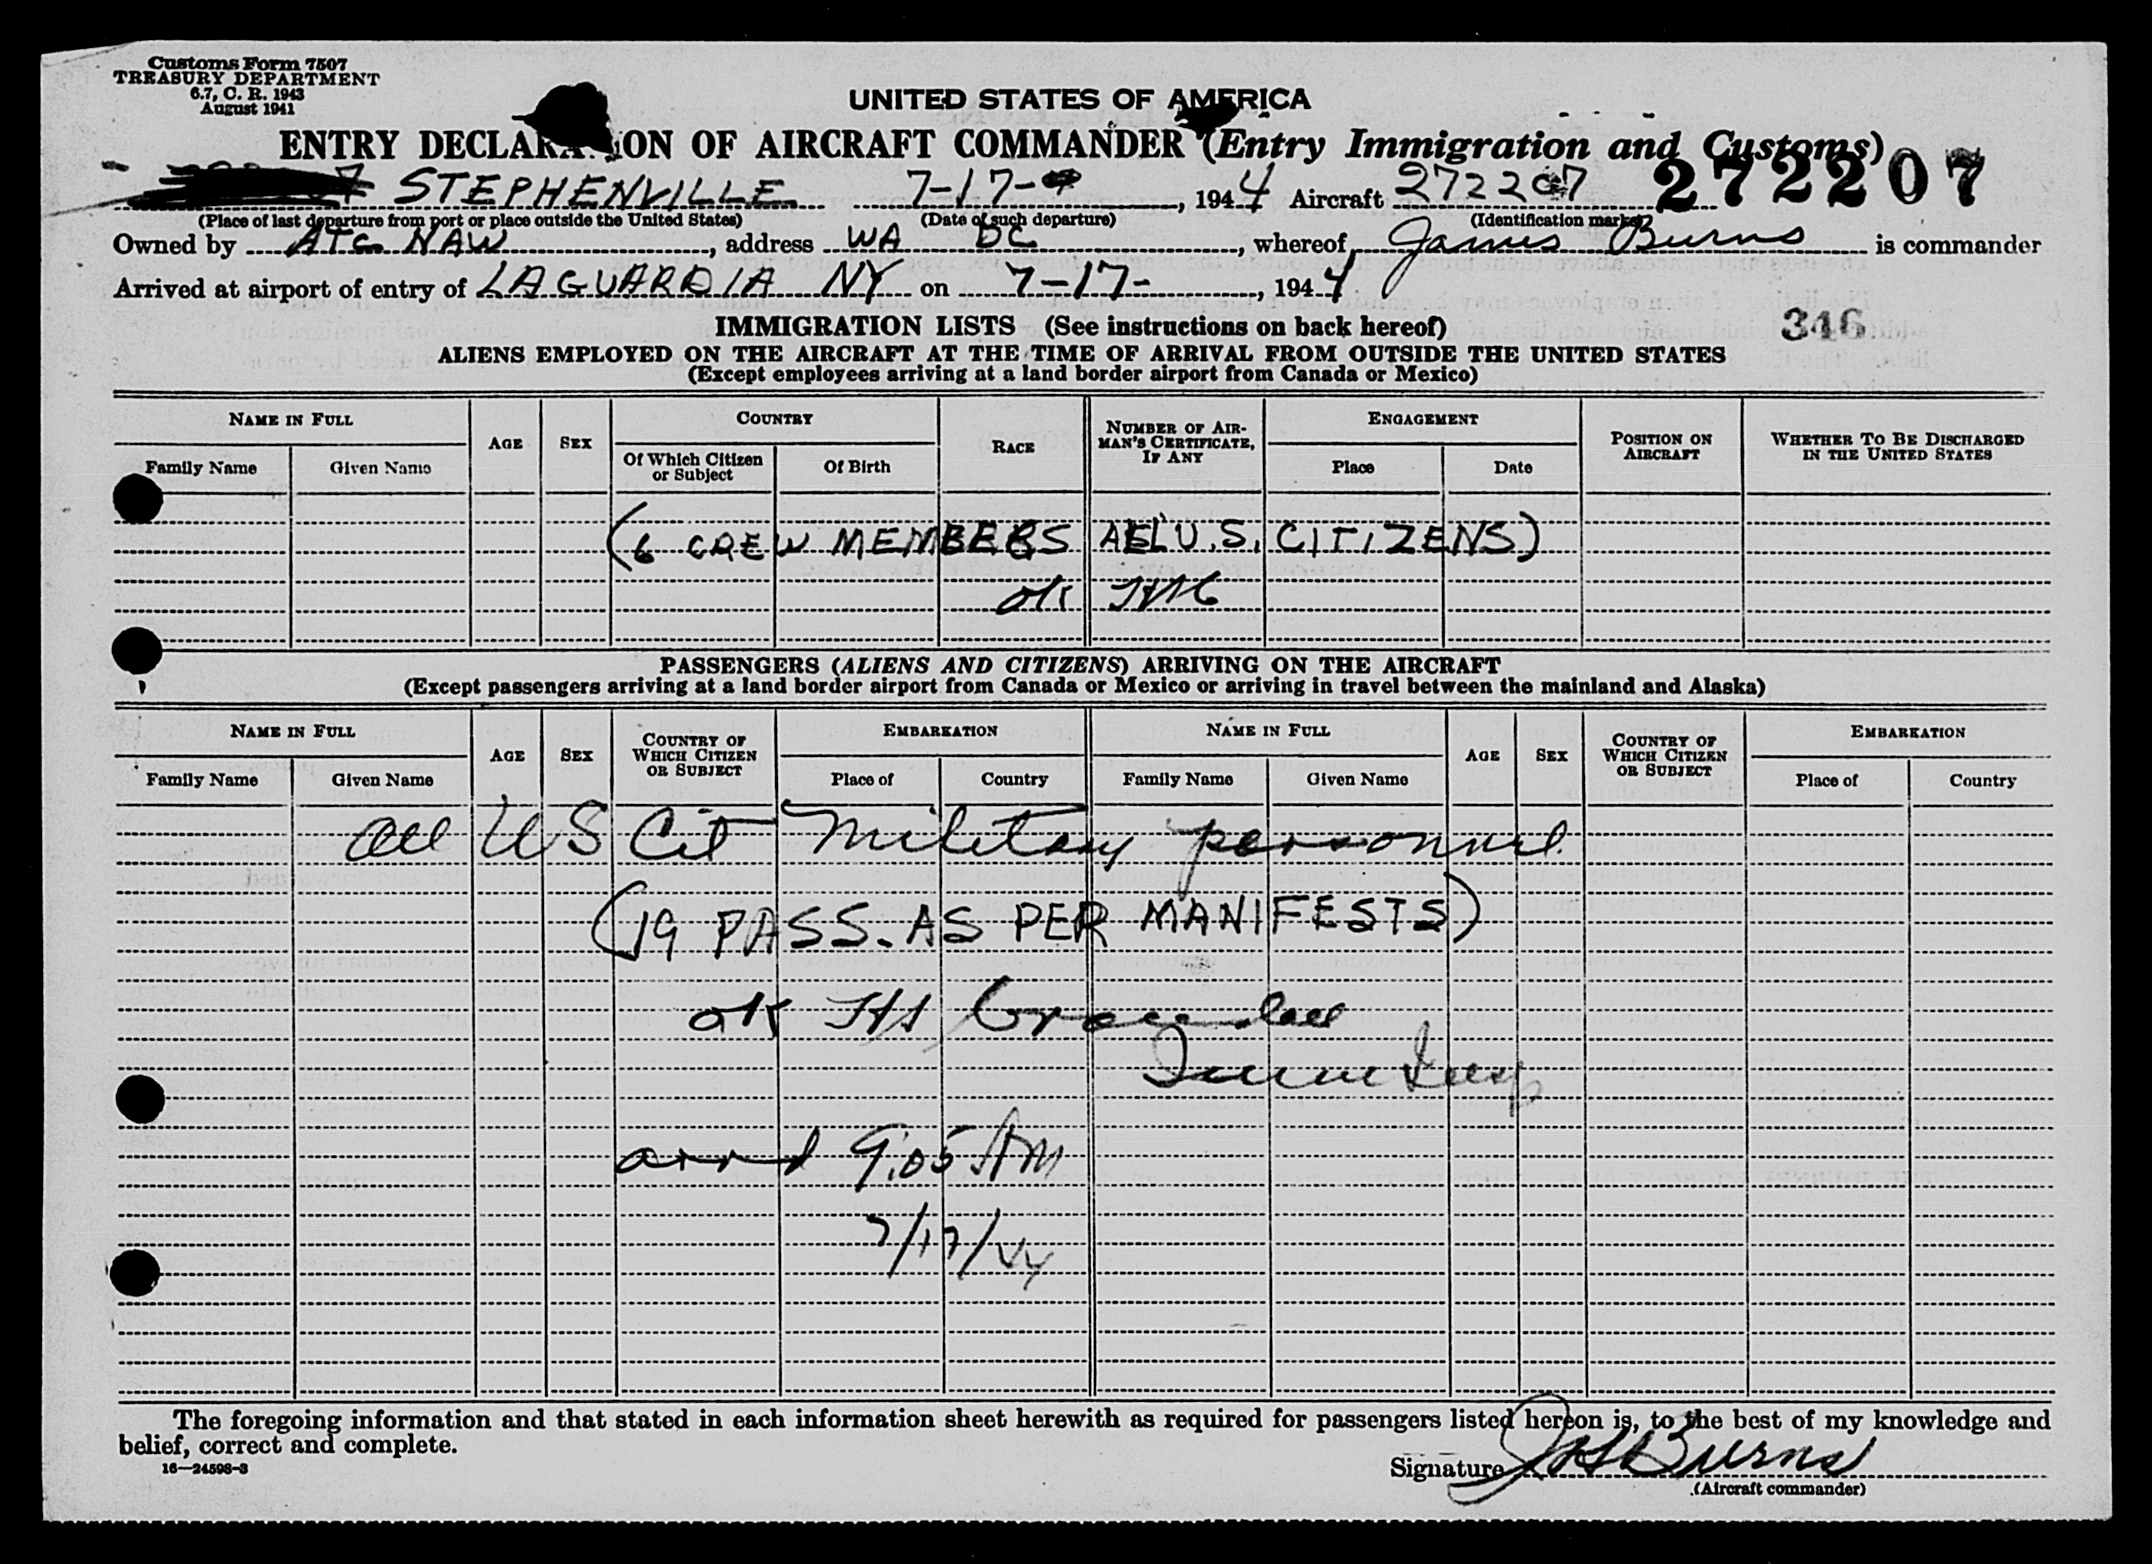 Customs Form 7507
TREASURY DEPARTMENT
6.7, C. R. 1943
August 1941
UNITED STATES OF AMERICA
ENTRY DECLARATION OF AIRCRAFT COMMANDER (Entry Immigration and Customs)
STEPHENVILLE 7-17- , 1944 Aircraft 272207 272207
(Place of last departure from port or place outside the United States) (Date of such departure) (Identification marks)
Owned by ATC NAW , address WA DC , whereof James Burns is commander
Arrived at airport of entry of LAGUARDIA NY on 7-17- , 1944
IMMIGRATION LISTS (See instructions on back hereof) 346
ALIENS EMPLOYED ON THE AIRCRAFT AT THE TIME OF ARRIVAL FROM OUTSIDE THE UNITED STATES
(Except employees arriving at a land border airport from Canada or Mexico)
NAME IN FULL AGE SEX COUNTRY RACE NUMBER OF AIRMAN'S CERTIFICATE, IF ANY ENGAGEMENT POSITION ON AIRCRAFT WHETHER TO BE DISCHARGED IN THE UNITED STATES
Family Name Given Name Of Which Citizen or Subject Of Birth Place Date
(6 CREW MEMBERS U.S. CITIZENS)
OK
PASSENGERS (ALIENS AND CITIZENS) ARRIVING ON THE AIRCRAFT
(Except passengers arriving at a land border airport from Canada or Mexico or arriving in travel between the mainland and Alaska)
NAME IN FULL AGE SEX COUNTRY OF WHICH CITIZEN OR SUBJECT EMBARKATION NAME IN FULL AGE SEX COUNTRY OF WHICH CITIZEN OR SUBJECT EMBARKATION
Family Name Given Name Place of Country Family Name Given Name Place of Country
All US Cit Military personnel
(19 PASS. AS PER MANIFESTS)
OK
Imm Insp
arrd 9:05 AM
7/17/44
The foregoing information and that stated in each information sheet herewith as required for passengers listed hereon is, to the best of my knowledge and
belief, correct and complete.
16—24598-3
Signature Burns
(Aircraft commander)